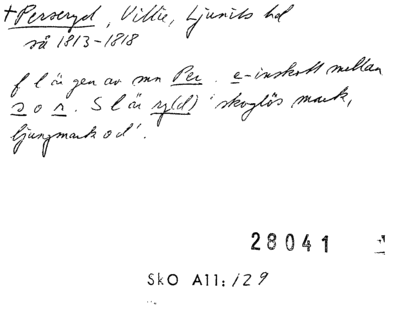 +Perseryd, Villie, Ljunits hd
så 1813-1818
f l är gen av mn Per. e-inskott mellan
s o r. S l är ry(d) 'skoglös mark,
ljungmark o d'.
28041
SkO A11:129